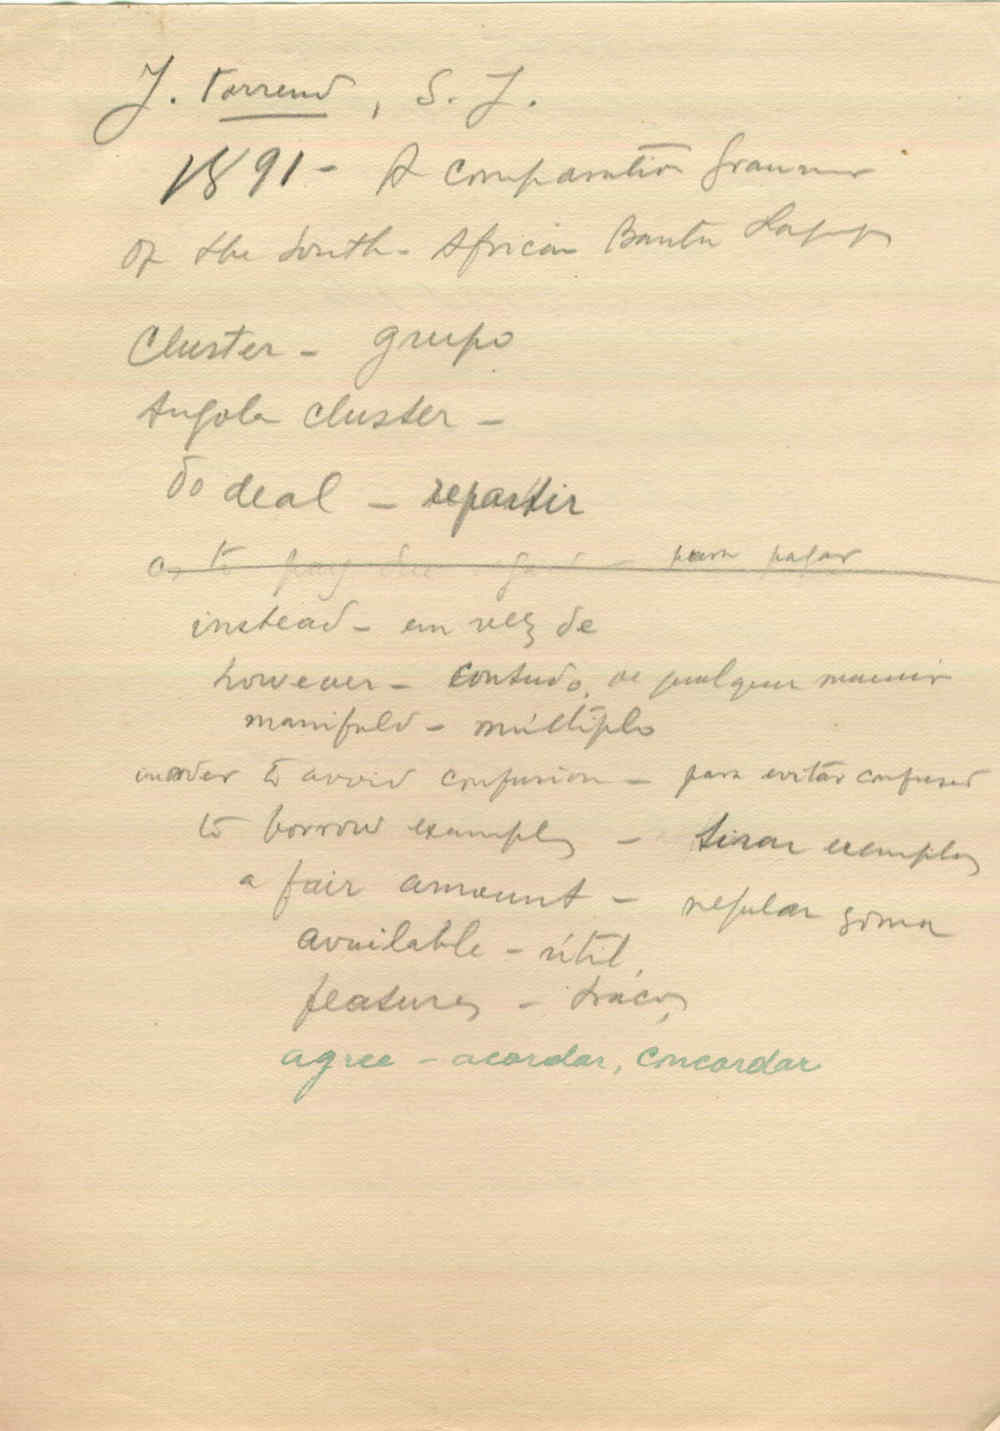 J. Torrend, S. J.
1891 - A comparative Grammar
of the South-African Bantu
Cluster - grupo
Angola cluster -
To deal - repartir
as to pay - para pagar
instead - em vez de
however - contudo, de qualquer maneir
manifold - múltiplo
in order to avoid confusion - para evitar
to borrow examples - tirar exemplos
a fair amount - regular soma
available - útil,
features - traços
agree - acordar, concordar